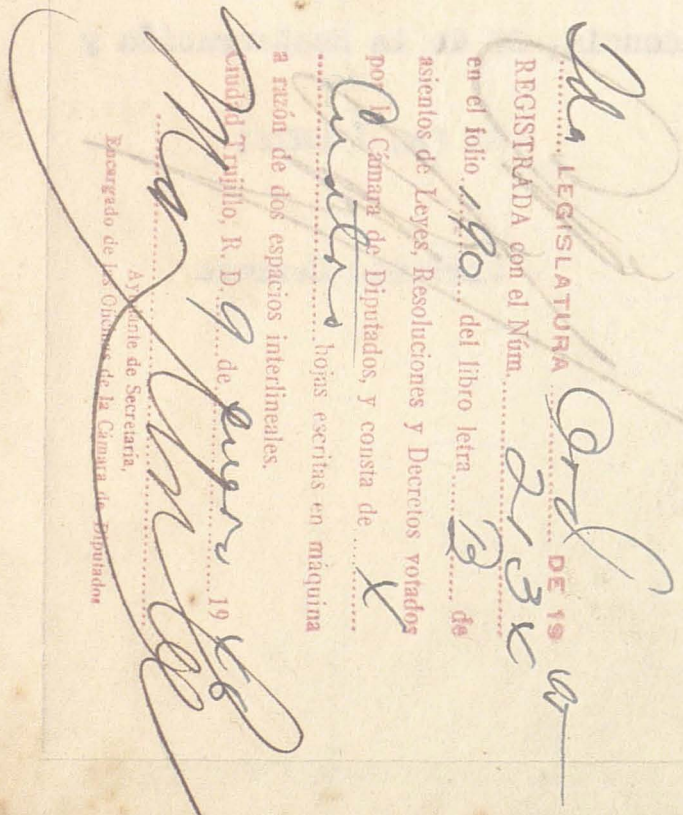 2da LEGISLATURA Ord DE 19
REGISTRADA con el Núm.
en el folio 190 del libro letra B de
asientos de Leyes, Resoluciones y Decretos votados
por la Cámara de Diputados, y consta de
hojas escritas en maquina
a razón de dos espacios interlineales.
Ciudad Trujillo, R. D. 9 de 19
Ayudante de Secretaria,
Encargado de las Oficinas de la Cámara de Diputados